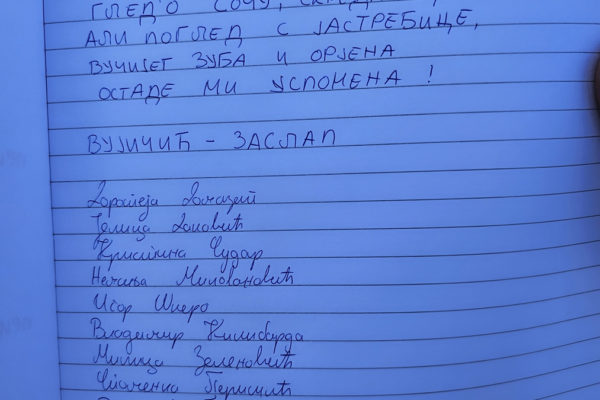 ГЛЕД'О СОЧУ,
АЛИ ПОГЛЕД С ЈАСТРЕБИЦЕ,
ВУЧИЈЕГ ЗУБА И ОРЈЕНА
ОСТАДЕ МИ УСПОМЕНА!
ВУЈИЧИЋ - ЗАСЛАП
Доротеја
Јелица
Кристина Чудар
Немања Миловановић
Игор Шперо
Владимир Килибарда
Милица Зеленовић
Споменка Перишић